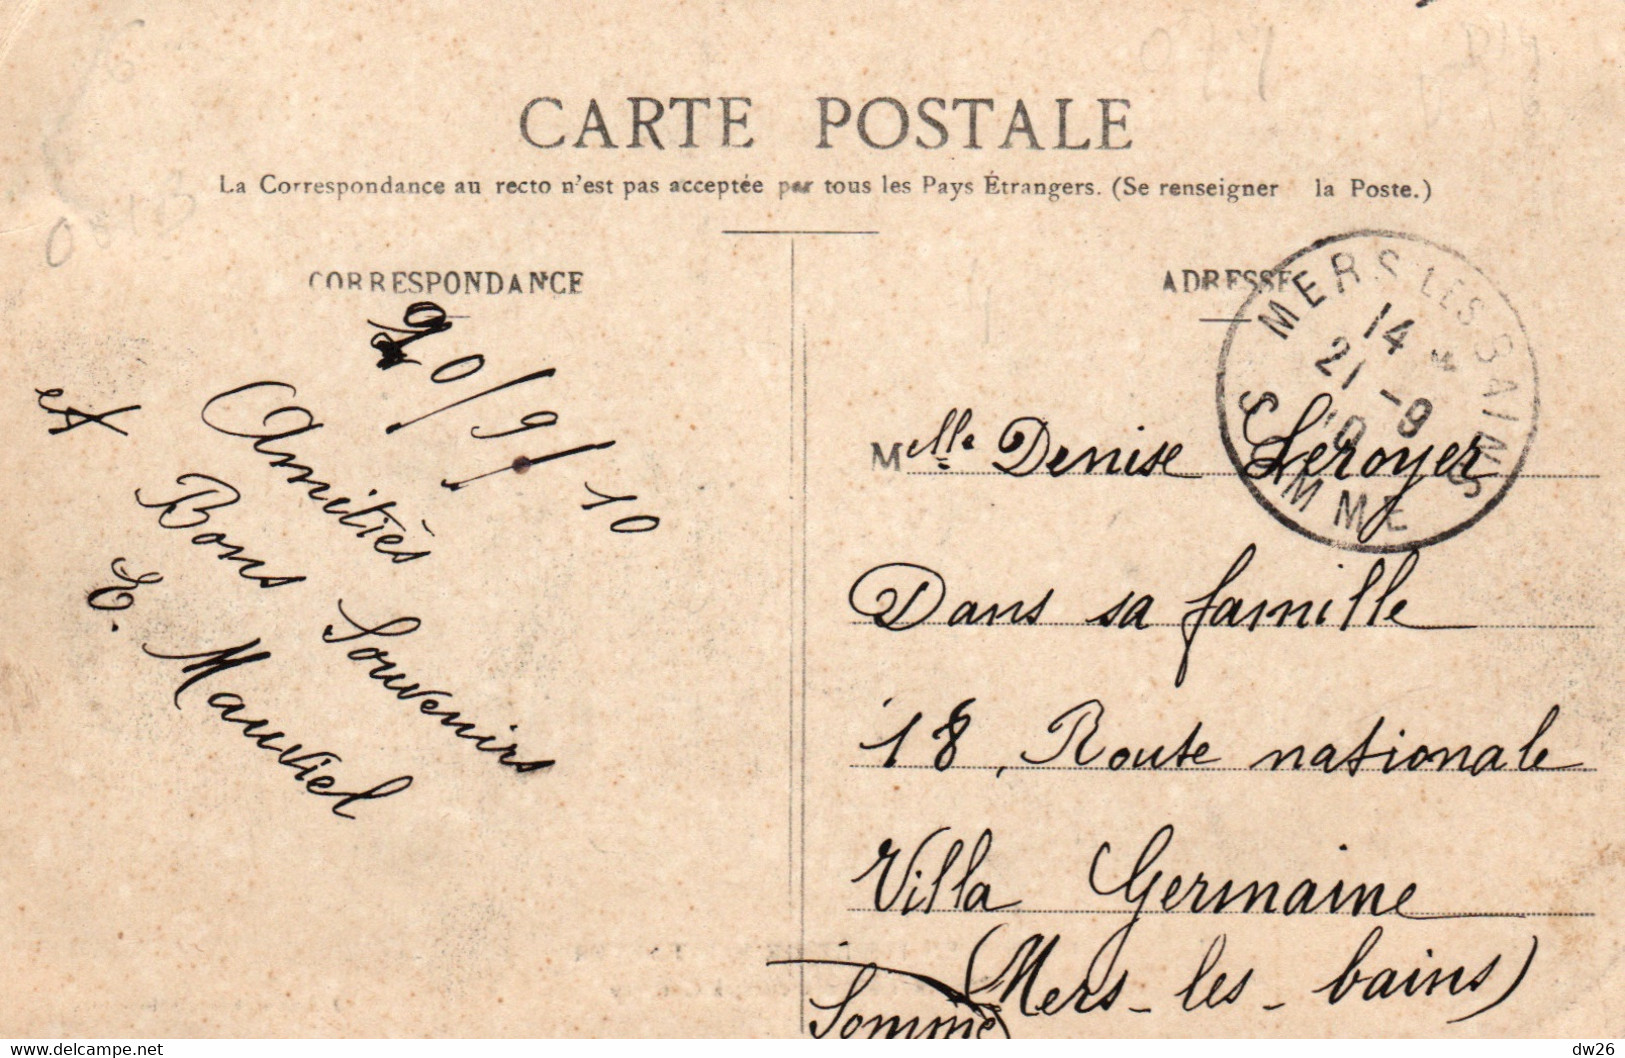 CARTE POSTALE
La Correspondance au recto n'est pas acceptée par tous les Pays Étrangers. (Se renseigner la Poste.)
CORRESPONDANCE
20/9/10
Amitiés
et Bons Souvenirs
E. Mauviel
ADRESSE
MERS LES BAINS
14
21-9
10
SOMME
Melle Denise Leroyer
Dans sa famille
18, Route nationale
Villa Germaine
(Mers-les-bains)
Somme
dw26